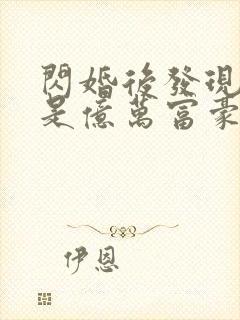 閃婚後發現
是億萬富豪
伊恩